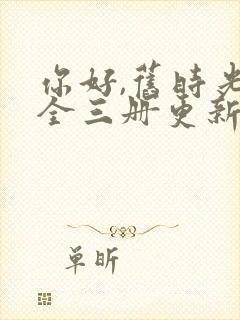 你好,舊時光
全三册更新
单昕